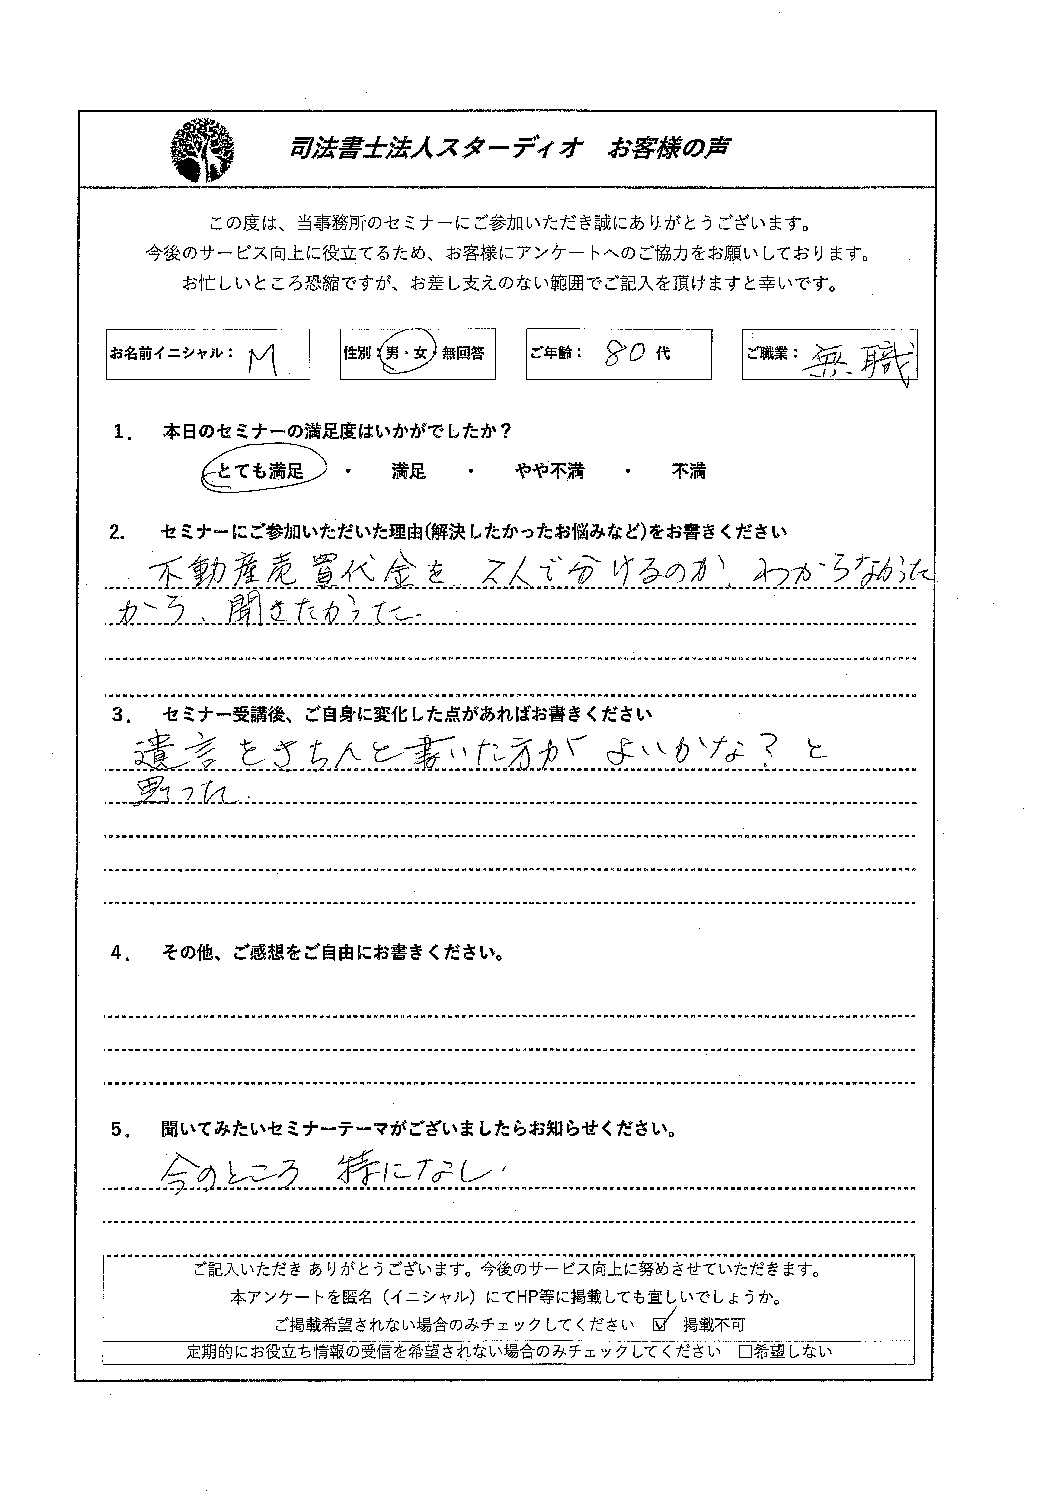 司法書士法人スターディオ　お客様の声
この度は、当事務所のセミナーにご参加いただき誠にありがとうございます。
今後のサービス向上に役立てるため、お客様にアンケートへのご協力をお願いしております。
お忙しいところ恐縮ですが、お差し支えのない範囲でご記入を頂けますと幸いです。
お名前イニシャル： M 性別：男・女・無回答 ご年齢： 80 代 ご職業： 無職
1． 本日のセミナーの満足度はいかがでしたか？
とても満足 ・ 満足 ・ やや不満 ・ 不満
2． セミナーにご参加いただいた理由(解決したかったお悩みなど)をお書きください
不動産売買代金を 2人で分けるのか、わからなかった
から、聞きたかった.
3． セミナー受講後、ご自身に変化した点があればお書きください
遺言をきちんと書いた方が よいかな？と
思った.
4． その他、ご感想をご自由にお書きください。
5． 聞いてみたいセミナーテーマがございましたらお知らせください。
今のところ 特になし.
ご記入いただき ありがとうございます。今後のサービス向上に努めさせていただきます。
本アンケートを匿名（イニシャル）にてHP等に掲載しても宜しいでしょうか。
ご掲載希望されない場合のみチェックしてください ☑ 掲載不可
定期的にお役立ち情報の受信を希望されない場合のみチェックしてください □希望しない